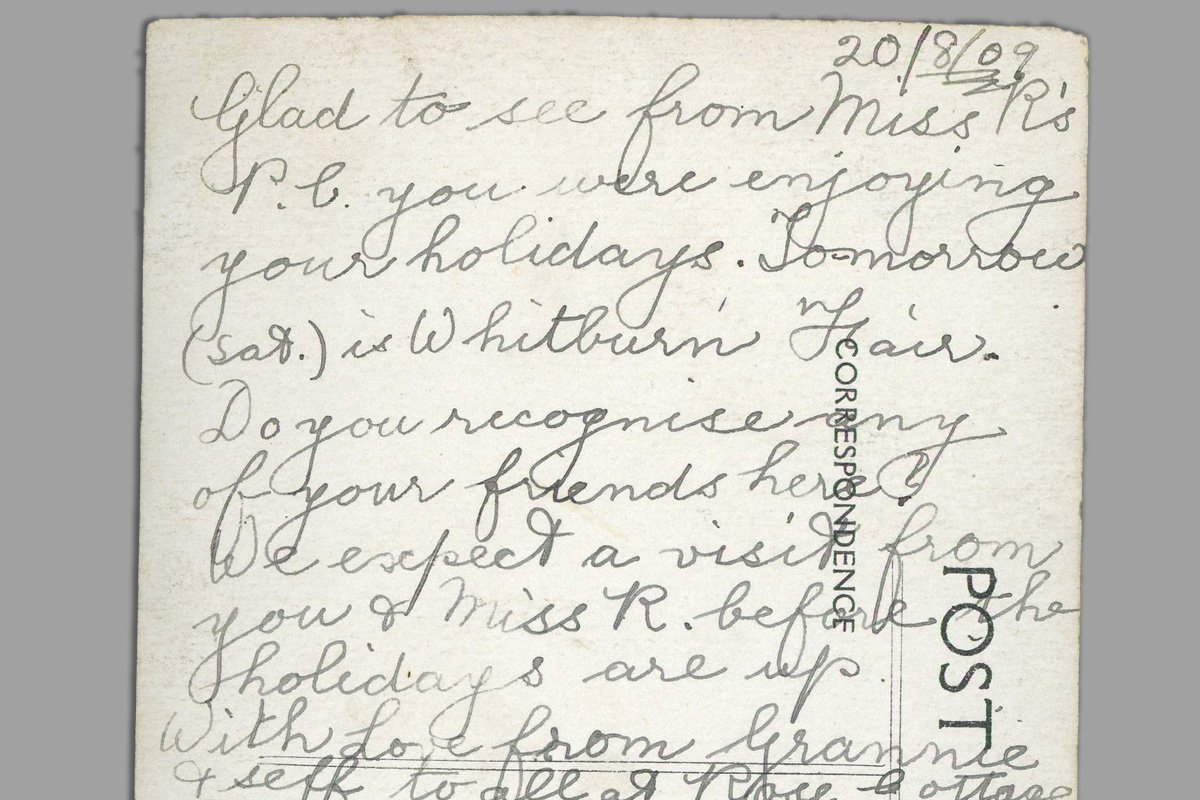 20/8/09
Glad to see from Miss R's
P.C. you were enjoying
your holidays. To-morrow
(sat.) is Whitburn Fair.
Do you recognise any
of your friends here?
We expect a visit from
you & Miss R. before the
holidays are up
With Love from Grannie
& self to all at Rose Cottage
CORRESPONDENCE
POST